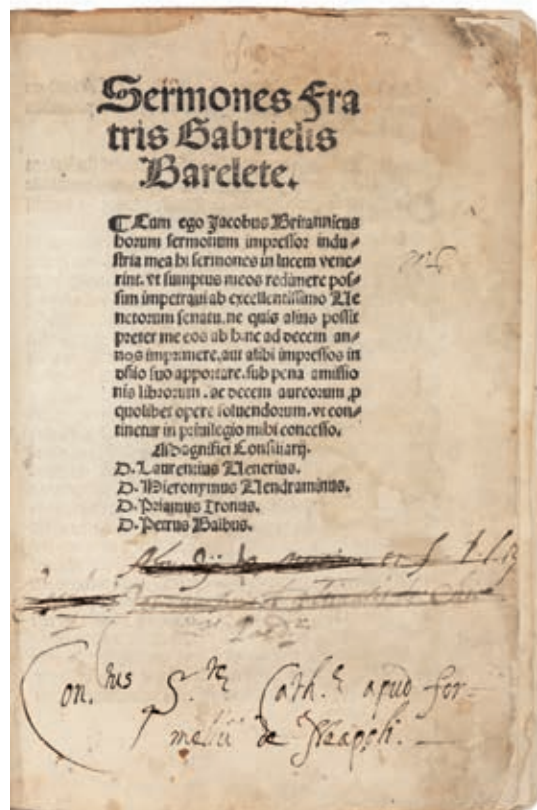 Sermones Fra
tris Gabrielis
Barelete.
¶ Cum ego Jacobus Britannicus
horum sermonum impressor indu-
stria mea hi sermones in lucem vene-
rint. vt sumptus meos redimere pos-
sim impetraui ab excellentissimo Ue
netorum senatu. ne quis alius possit
preter me eos ab hinc ad decem an-
nos imprimere. aut alibi impressos in
ditio suo apportare. sub pena amissio
nis librorum. ac decem aureorum p
quolibet opere soluendorum. vt con-
tinetur in priuilegio mihi concesso.
Magnifici Consiliarij.
D. Laurentius Uenerius.
D. Hieronymus Uendraminus.
D. Priamus Tronus.
D. Petrus Balbus.
Con.tus S.te Cath.e apud for-
mellū de Neapoli.